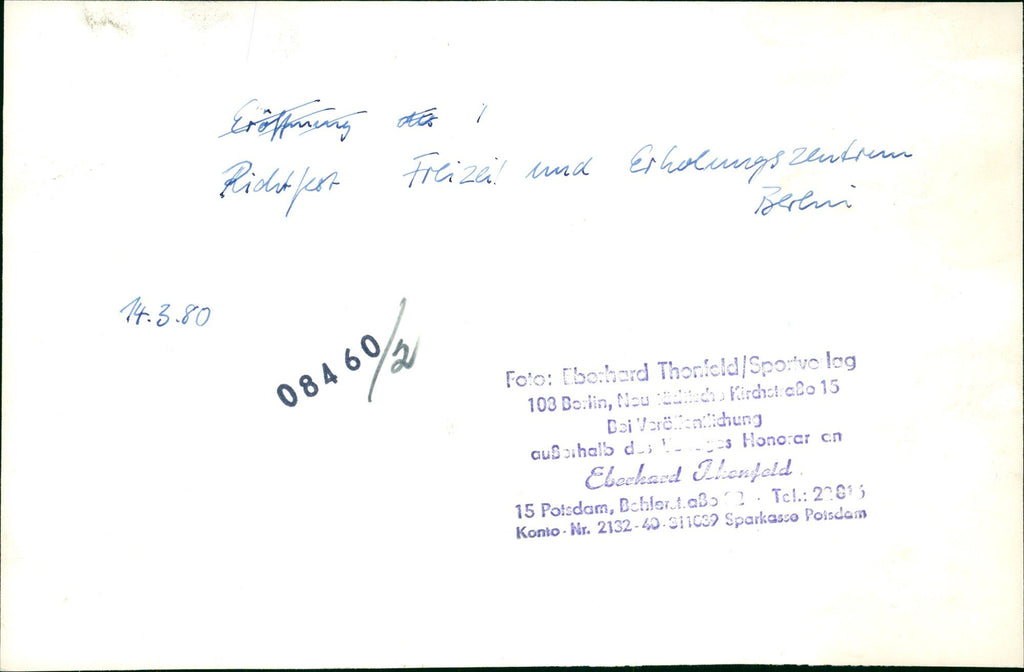 Eröffnung des
Richtfest Freizeit und Erholungszentrum
Berlin
14.3.80
08460/2
Foto: Eberhard Thonfeld/Sportverlag
108 Berlin, Neustädtische Kirchstraße 15
Bei Veröffentlichung
außerhalb des Verlages Honorar an
Eberhard Thonfeld
15 Potsdam, Tel.:
Konto-Nr. 2132-40-311039 Sparkasse Potsdam